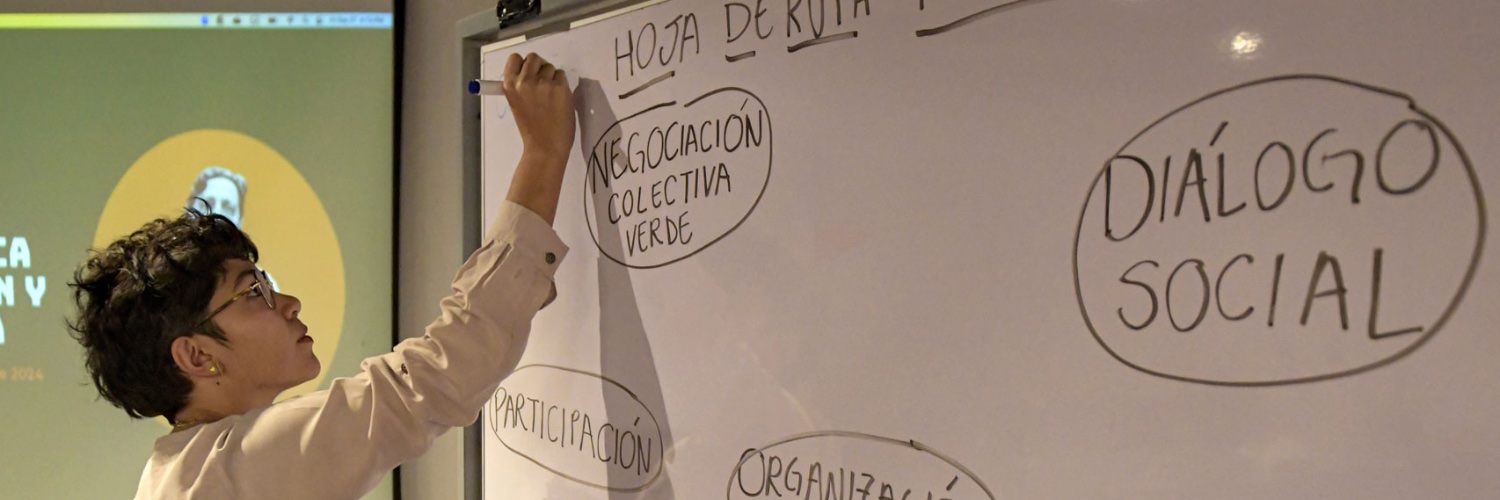 HOJA DE RUTA
NEGOCIACIÓN
COLECTIVA
VERDE
DIÁLOGO
SOCIAL
PARTICIPACIÓN
CA
N Y
2024